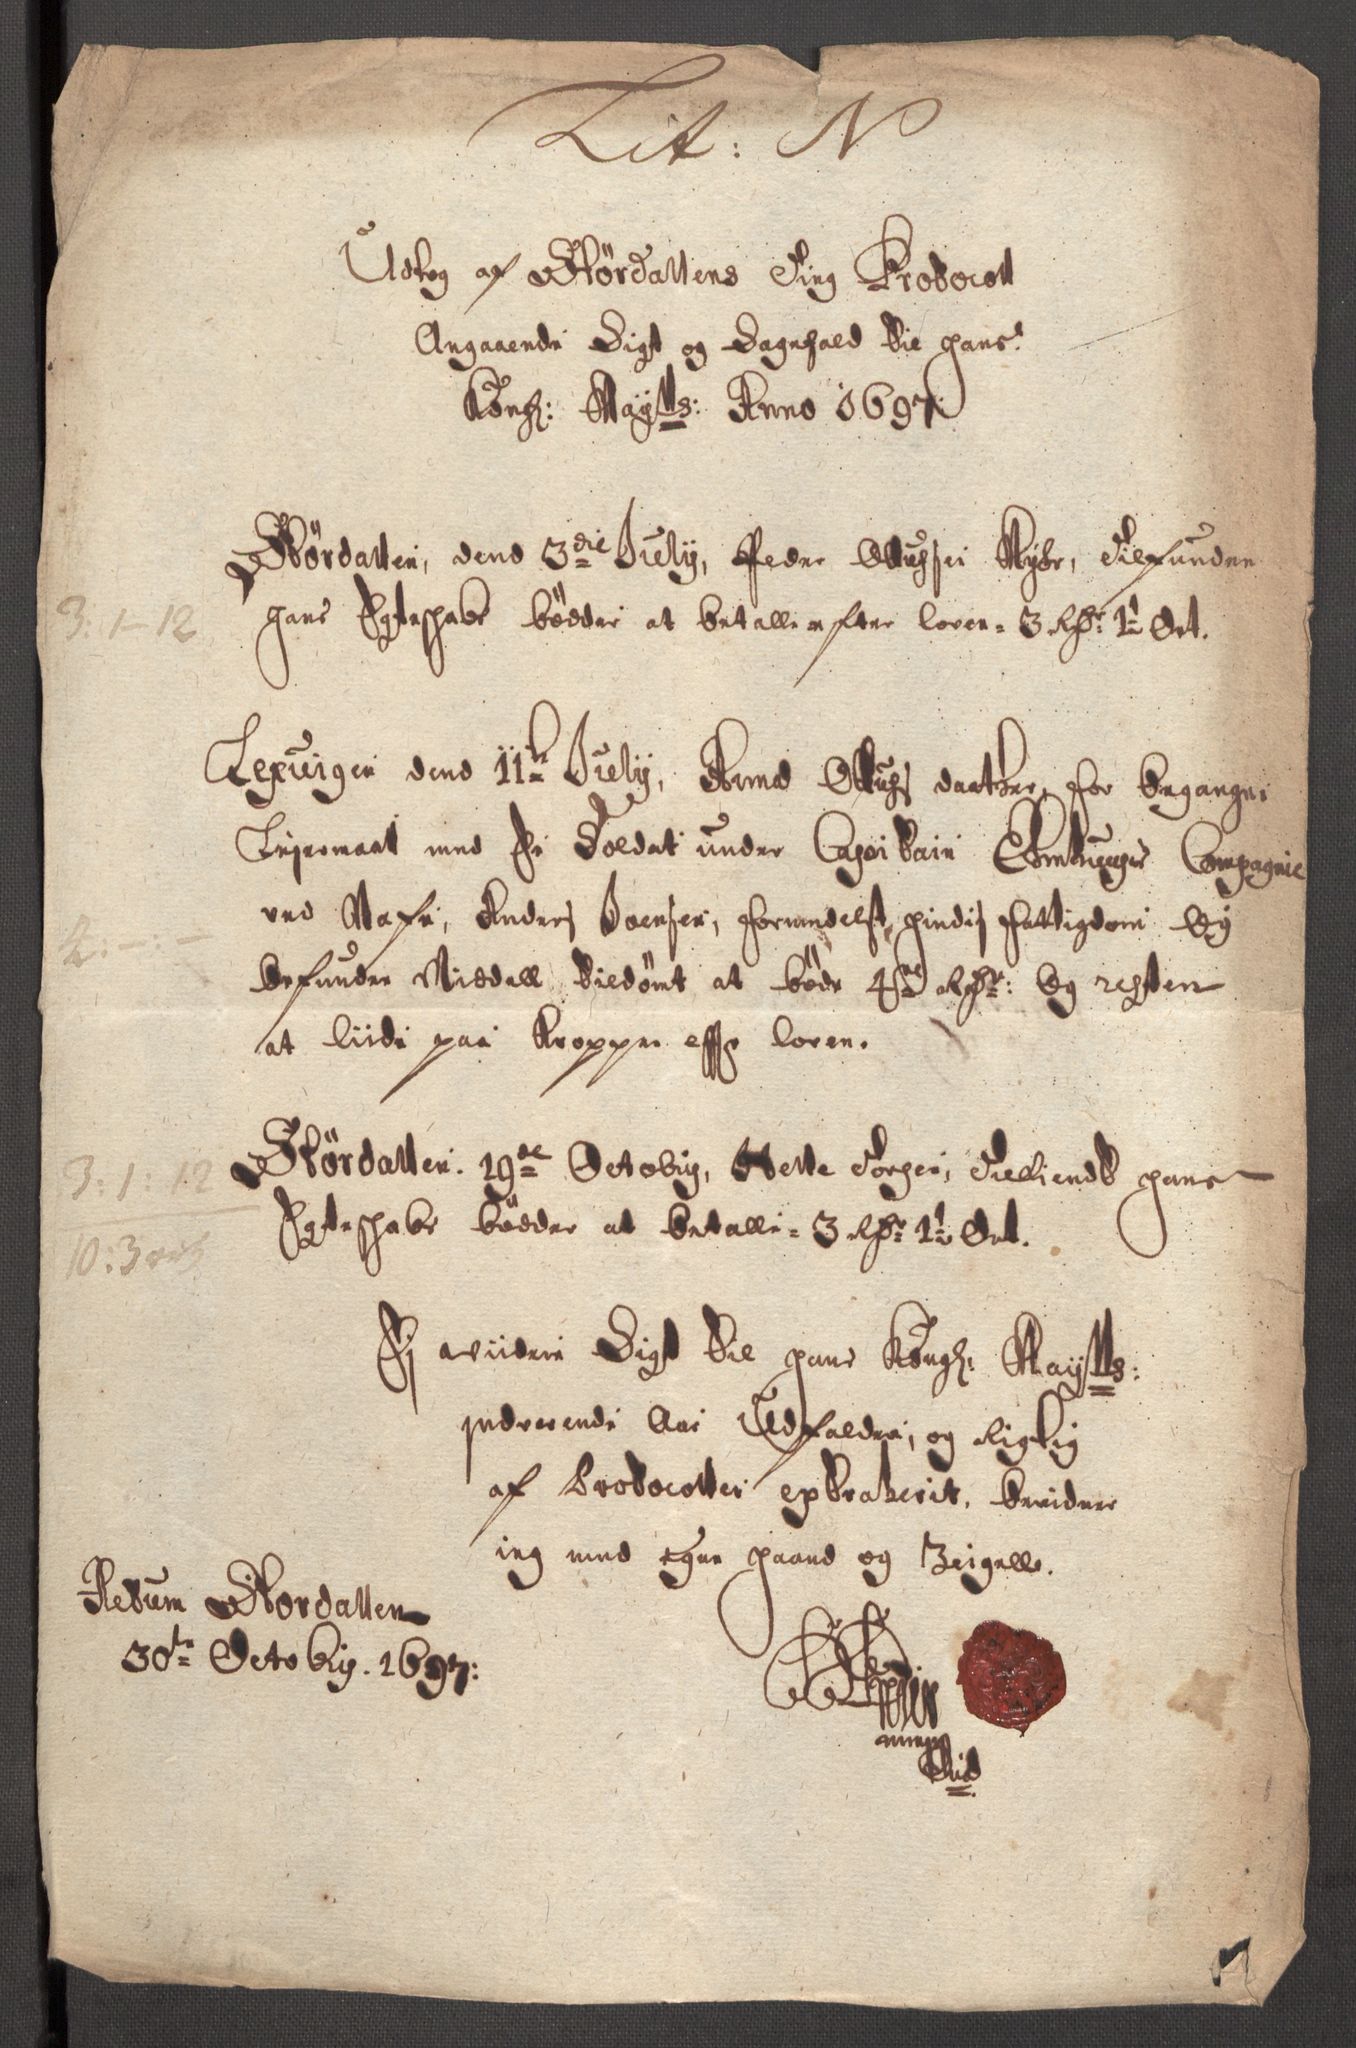 Lit: N
Udtog af Størdallens Ting Protocoll
Angaaende Sigt og Sagefald til hans
Kongl: Maÿtts: Anno 1697:
Størdallen, dend 3die Julij, Peder Olufsen Mÿhr, Tilfunden
3: 1- 12
hans Egteschabs bødder at betalle efter loven = 3 Rdr: 1½ Ort.
Lexvigen dend 11te Julij, Anne Olufs daatter, for begangne
Leiermaal med En Soldat under Capitain Compagnie
ved Nafn, Anders Joensen, formedelst hindis fattigdom og
2: - : -
befunden Middell tildømt at bøde Rdr: og resten
at liide paa Kroppen efter loven.
Størdallen. 19de Octobris, Torgen, Tilkiendt hans
3: 1: 12
Egteschabs bødder at betalle = 3 Rdr: 1½ Ort.
10: 3
Ej widere Sigt til hans Kongl: Maÿtts:
indverende Aar Udfalden, og Rigtig
af Protocollen extraherit, bevidner
ieg med egen haand og Zeigelle.
Actum Størdallen
30te Octobris. 1697:
mpp